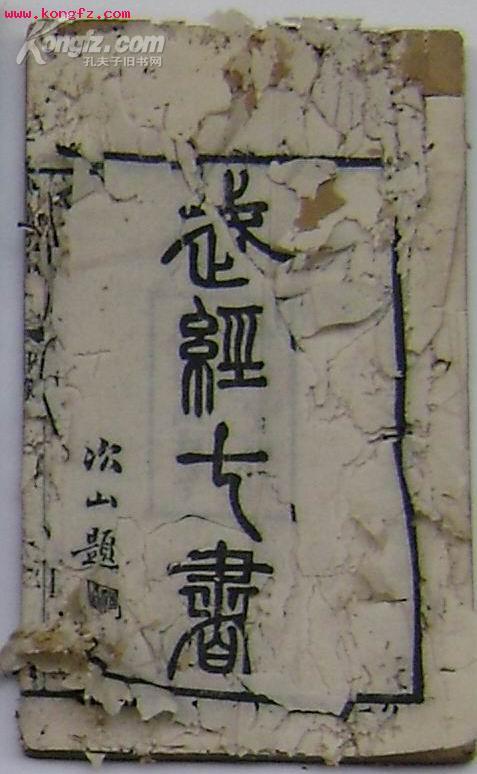 www.kongfz.com
Kongfz.com
孔夫子旧书网
武經七書
次山題